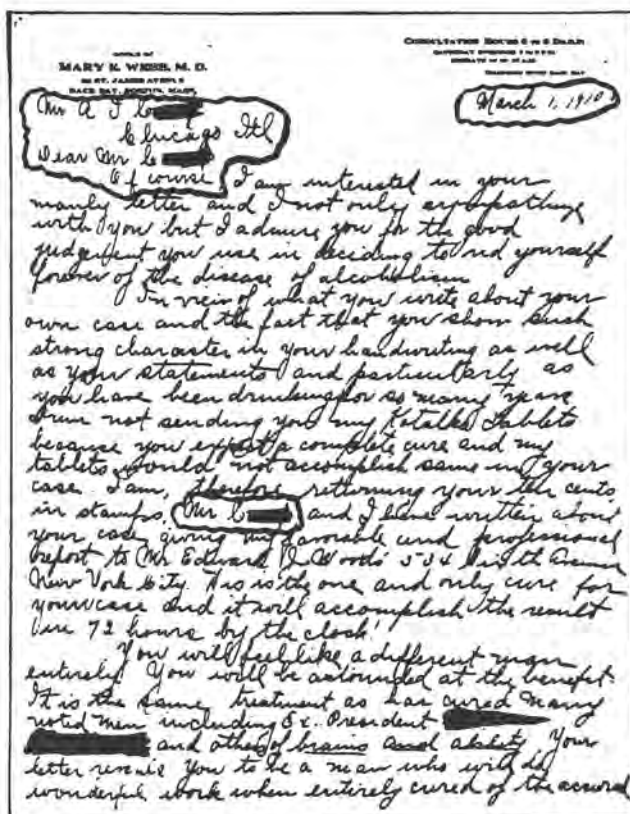 OFFICE OF
MARY K. WEBB, M. D.
ST. JAMES AVENUE
BACK BAY, BOSTON, MASS.
CONSULTATION HOURS 2 TO 5 DAILY
March 1, 1910
Mr A J C
Chicago Ill
Dear Mr C
Of course I am interested in your
manly letter and I not only sympathize
with you but I admire you for the good
judgement you use in deciding to rid yourself
forever of the disease of alcoholism
In view of what you write about your
own case and the fact that you show such
strong character in your handwriting as well
as your statements and particularly as
you have been drinking for so many years
I am not sending you my Kotalko Tablets
because you expect a complete cure and my
tablets would not accomplish same in your
case I am, therefore returning your ten cents
in stamps, Mr C and I have written about
your case giving my favorable and professional
report to Mr Edward J Woods 534 Sixth Avenue
New York City. His is the one and only cure for
your case and it will accomplish the result
in 72 hours by the clock!
You will feel like a different man
entirely You will be astounded at the benefit.
It is the same treatment as has cured many
noted men including Ex. President
and others of brains and ability Your
letter reveals you to be a man who will do
wonderful work when entirely cured of the accursed